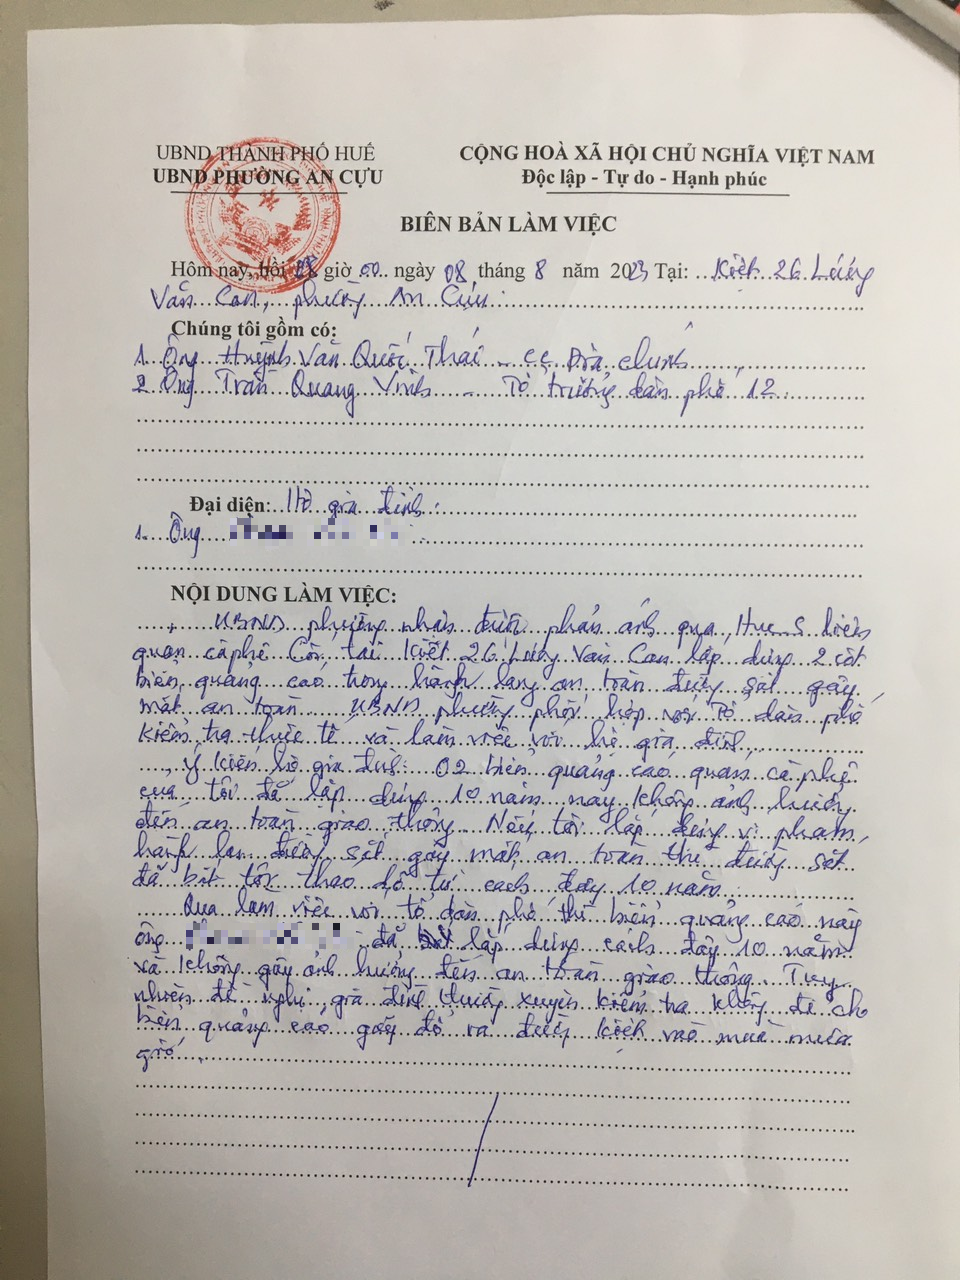 UBND THÀNH PHỐ HUẾ
UBND PHƯỜNG AN CỰU
CỘNG HOÀ XÃ HỘI CHỦ NGHĨA VIỆT NAM
Độc lập - Tự do - Hạnh phúc
BIÊN BẢN LÀM VIỆC
Hôm nay, hồi giờ 00 ngày 08 tháng 8 năm 2023 Tại: Kiệt 26 Lương
Văn Can, phường An Cựu.
Chúng tôi gồm có:
1. Ông Huỳnh Văn Quốc Thái - CC Địa chính
2. Ông Trần Quang Vinh - Tổ trưởng dân phố 12
Đại diện: Hộ gia đình:
1. Ông
NỘI DUNG LÀM VIỆC:
UBND phường nhận được phản ánh qua Hue S liên
quan cà phê Cội, tại Kiệt 26 Lương Văn Can lắp dựng 2 cột
biển quảng cáo trong hành lang an toàn đường sắt gây
mất an toàn. UBND phường phối hợp với Tổ dân phố
kiểm tra thực tế và làm việc với hộ gia đình.
Ý kiến hộ gia đình: 02 biển quảng cáo quán cà phê
của tôi đã lắp dựng 10 năm nay không ảnh hưởng
đến an toàn giao thông. Nếu tôi lắp dựng vi phạm
hành lan đường sắt gây mất an toàn thì đường sắt
đã bắt tôi tháo dỡ từ cách đây 10 năm.
Qua làm việc với tổ dân phố thì biển quảng cáo này
ông đã lắp dựng cách đây 10 năm
và không gây ảnh hưởng đến an toàn giao thông. Tuy
nhiên đề nghị gia đình thường xuyên kiểm tra không để cho
biển quảng cáo gãy đổ ra đường kiệt vào mùa mưa
gió.